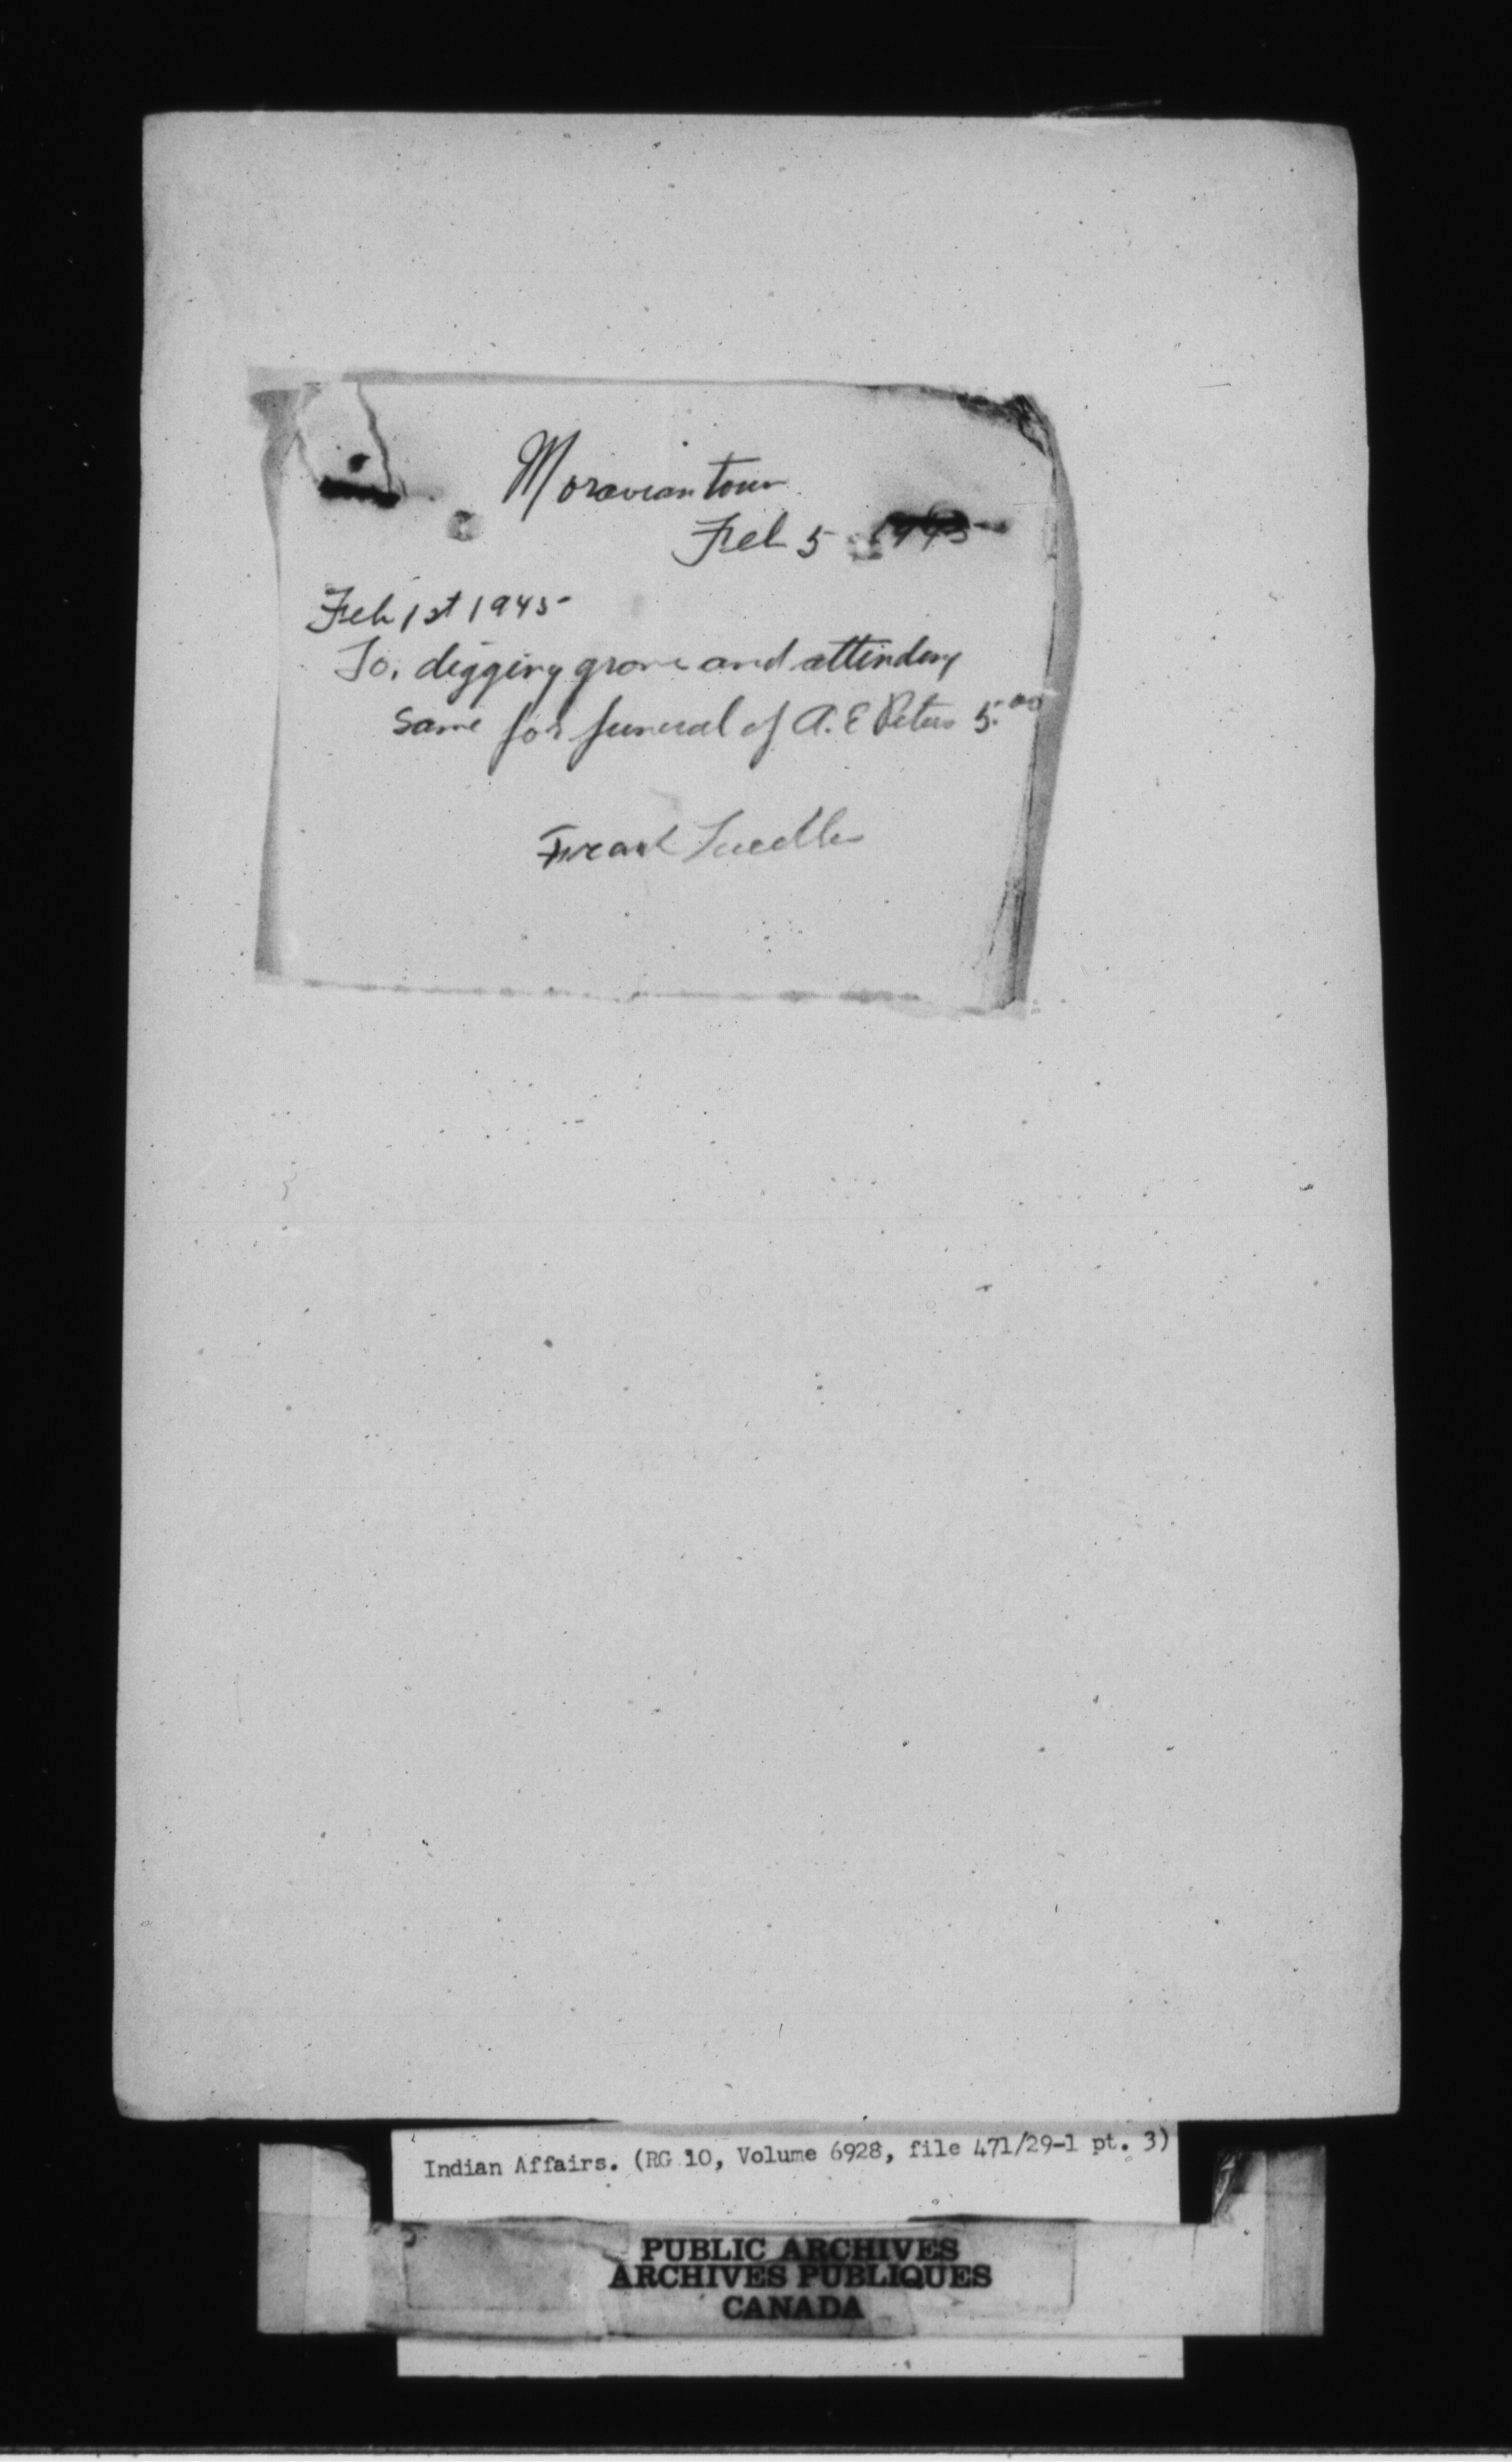 Moraviantown
Feb 5 1945
Feb 1st 1945
To, digging grave and attending
same for funeral of A. E Peters 5.00
Frank
Indian Affairs. (RG 10, Volume 6928, file 471/29-1 pt. 3)
PUBLIC ARCHIVES
ARCHIVES PUBLIQUES
CANADA